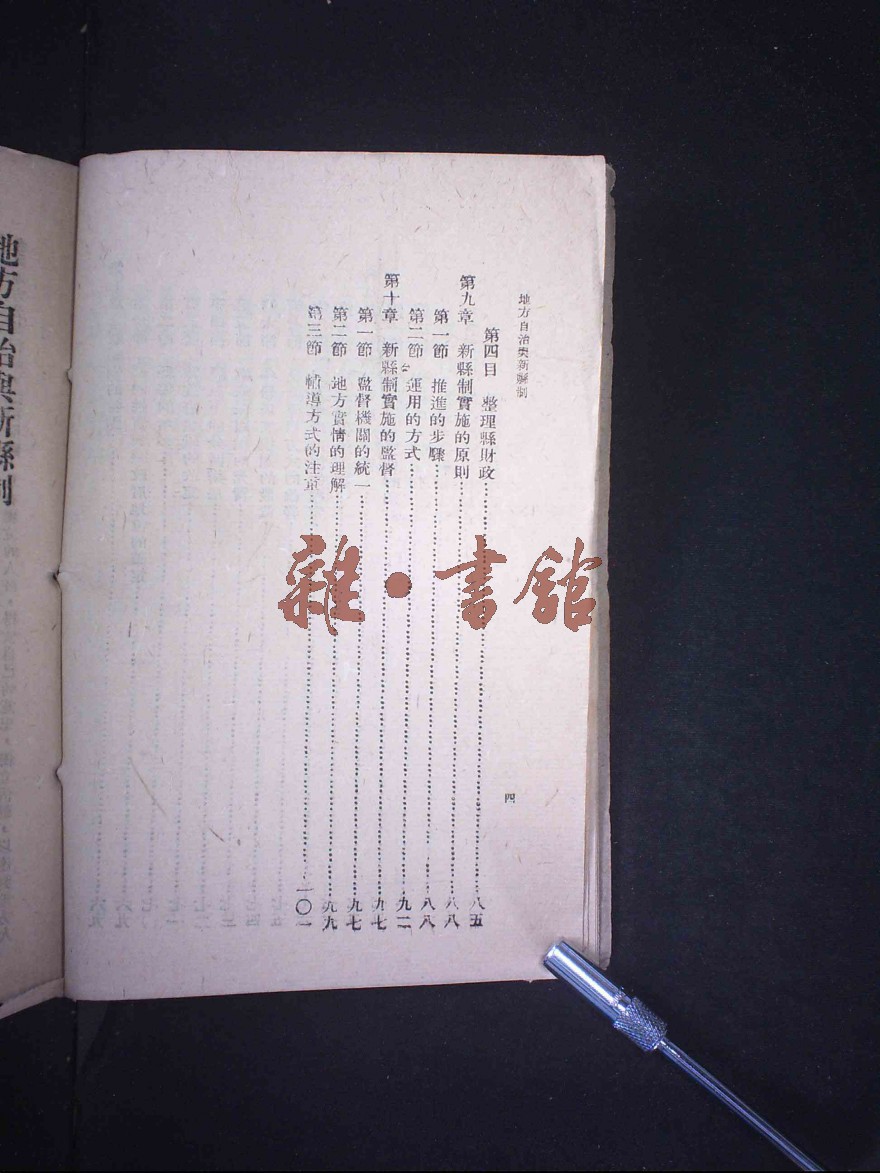 地方自治與新縣制
四
第四目 整理縣財政 八五
第九章 新縣制實施的原則 八八
第一節 推進的步驟 八八
第二節 運用的方式 九二
第十章 新縣制實施的監督 九七
第一節 監督機關的統一 九七
第二節 地方實情的理解 九九
第三節 輔導方式的注重 一〇一
雜·書館
地方自治與新縣制